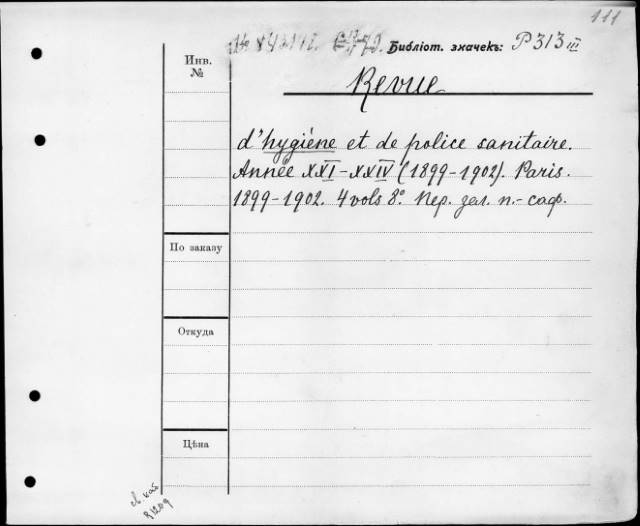 111
Библіот. значекъ: P 313 III
Инв. №
Revue
d'hygiène et de police sanitaire.
Année XXI-XXIV (1899-1902). Paris.
1899-1902. 4 vols 8°. Пер. зел. п.- саф.
По заказу
Откуда
Цѣна